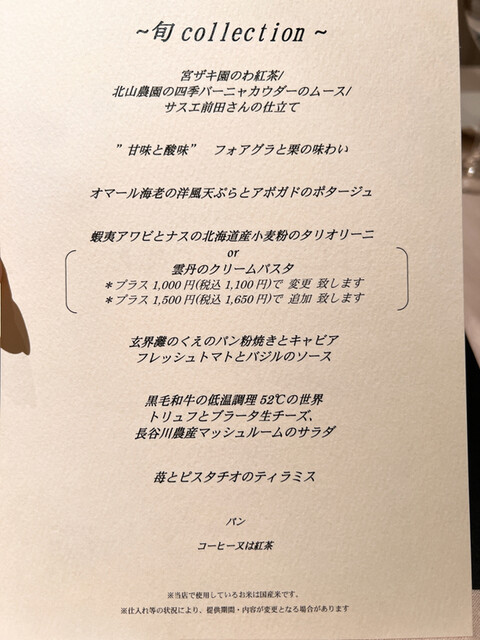 ~旬 collection ~
宮ザキ園のわ紅茶/
北山農園の四季バーニャカウダーのムース/
サスエ前田さんの仕立て
”甘味と酸味” フォアグラと栗の味わい
オマール海老の洋風天ぷらとアボガドのポタージュ
蝦夷アワビとナスの北海道産小麦粉のタリオリーニ
or
雲丹のクリームパスタ
＊プラス 1,000 円(税込 1,100 円)で 変更 致します
＊プラス 1,500 円(税込 1,650 円)で 追加 致します
玄界灘のくえのパン粉焼きとキャビア
フレッシュトマトとバジルのソース
黒毛和牛の低温調理 52℃の世界
トリュフとブラータ生チーズ、
長谷川農産マッシュルームのサラダ
苺とピスタチオのティラミス
パン
コーヒー又は紅茶
※当店で使用しているお米は国産米です。
※仕入れ等の状況により、提供期間・内容が変更となる場合があります